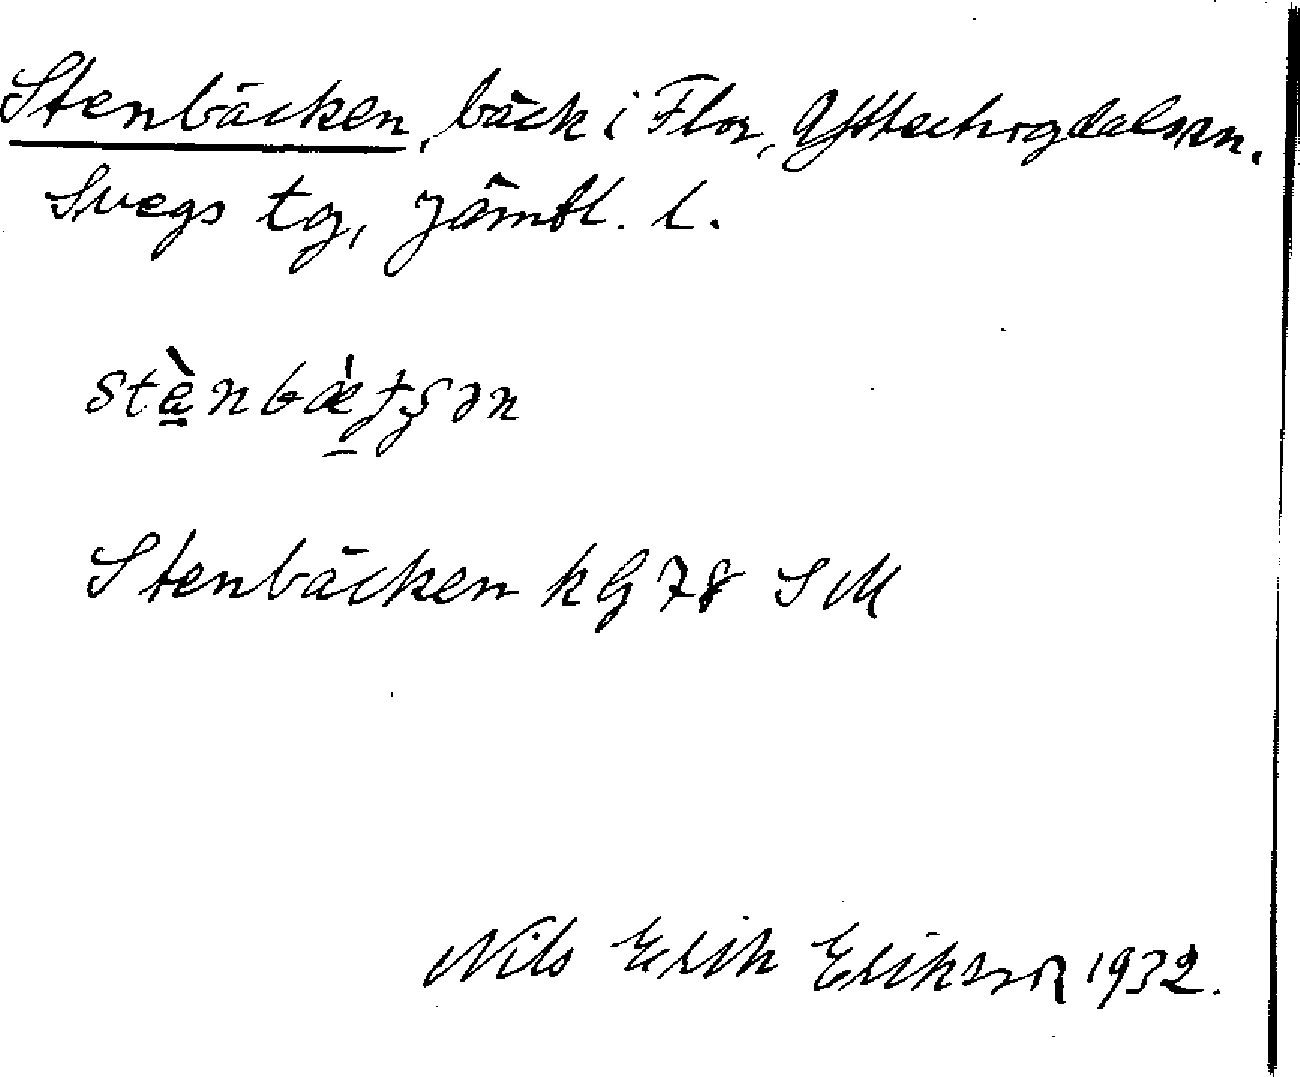 Stenbäcken, bäck i Flor, Ytterhogdals sn.
Svegs tg, Jämtl. l.
Stenbäcken kG 78 SM
Nils Erik Erikson 1932.